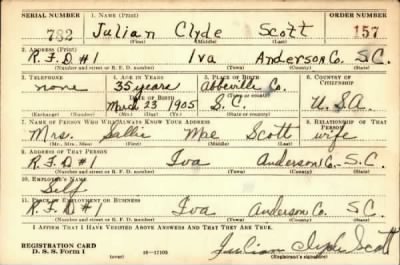 SERIAL NUMBER 1. NAME (Print) ORDER NUMBER
782 Julian Clyde Scott 157
(First) (Middle) (Last)
2. ADDRESS (Print)
R.F.D #1 Iva Anderson Co. S.C.
(Number and street or R. F. D. number) (Town) (County) (State)
3. TELEPHONE 4. AGE IN YEARS 5. PLACE OF BIRTH 6. COUNTRY OF CITIZENSHIP
none 35 years Abbeville Co.
DATE OF BIRTH (Town or county)
March 23 1905 S.C. U.S.A.
(Mo.) (Day) (Yr.) (State or country)
7. NAME OF PERSON WHO WILL ALWAYS KNOW YOUR ADDRESS 8. RELATIONSHIP OF THAT PERSON
Mrs. Sallie Mae Scott wife
(Mr., Mrs., Miss) (First) (Middle) (Last)
9. ADDRESS OF THAT PERSON
R.F.D #1 Iva Anderson Co. S.C.
(Number and street or R. F. D. number) (Town) (County) (State)
10. EMPLOYER'S NAME
Self
11. PLACE OF EMPLOYMENT OR BUSINESS
R.F.D #1 Iva Anderson Co. S.C.
(Number and street or R. F. D. number) (Town) (County) (State)
I AFFIRM THAT I HAVE VERIFIED ABOVE ANSWERS AND THAT THEY ARE TRUE.
REGISTRATION CARD
D. S. Form 1 16—17105 Julian Clyde Scott
(over) (Registrant's signature)